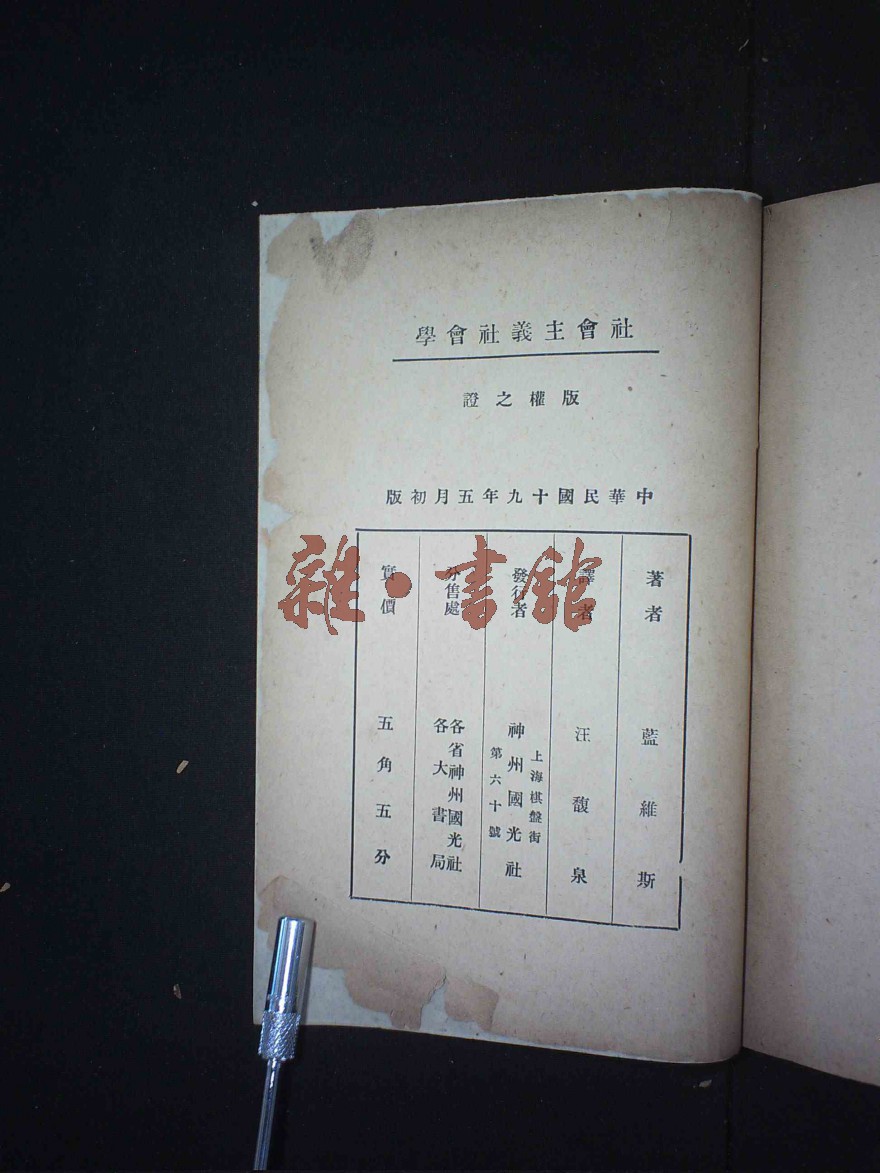 社會主義社會學
版權之證
中華民國十九年五月初版
著者 藍維斯
譯者 汪馥泉
發行者 神州國光社
上海棋盤街
第六十號
分售處
各省神州國光社
各大書局
實價 五角五分
雜·書館